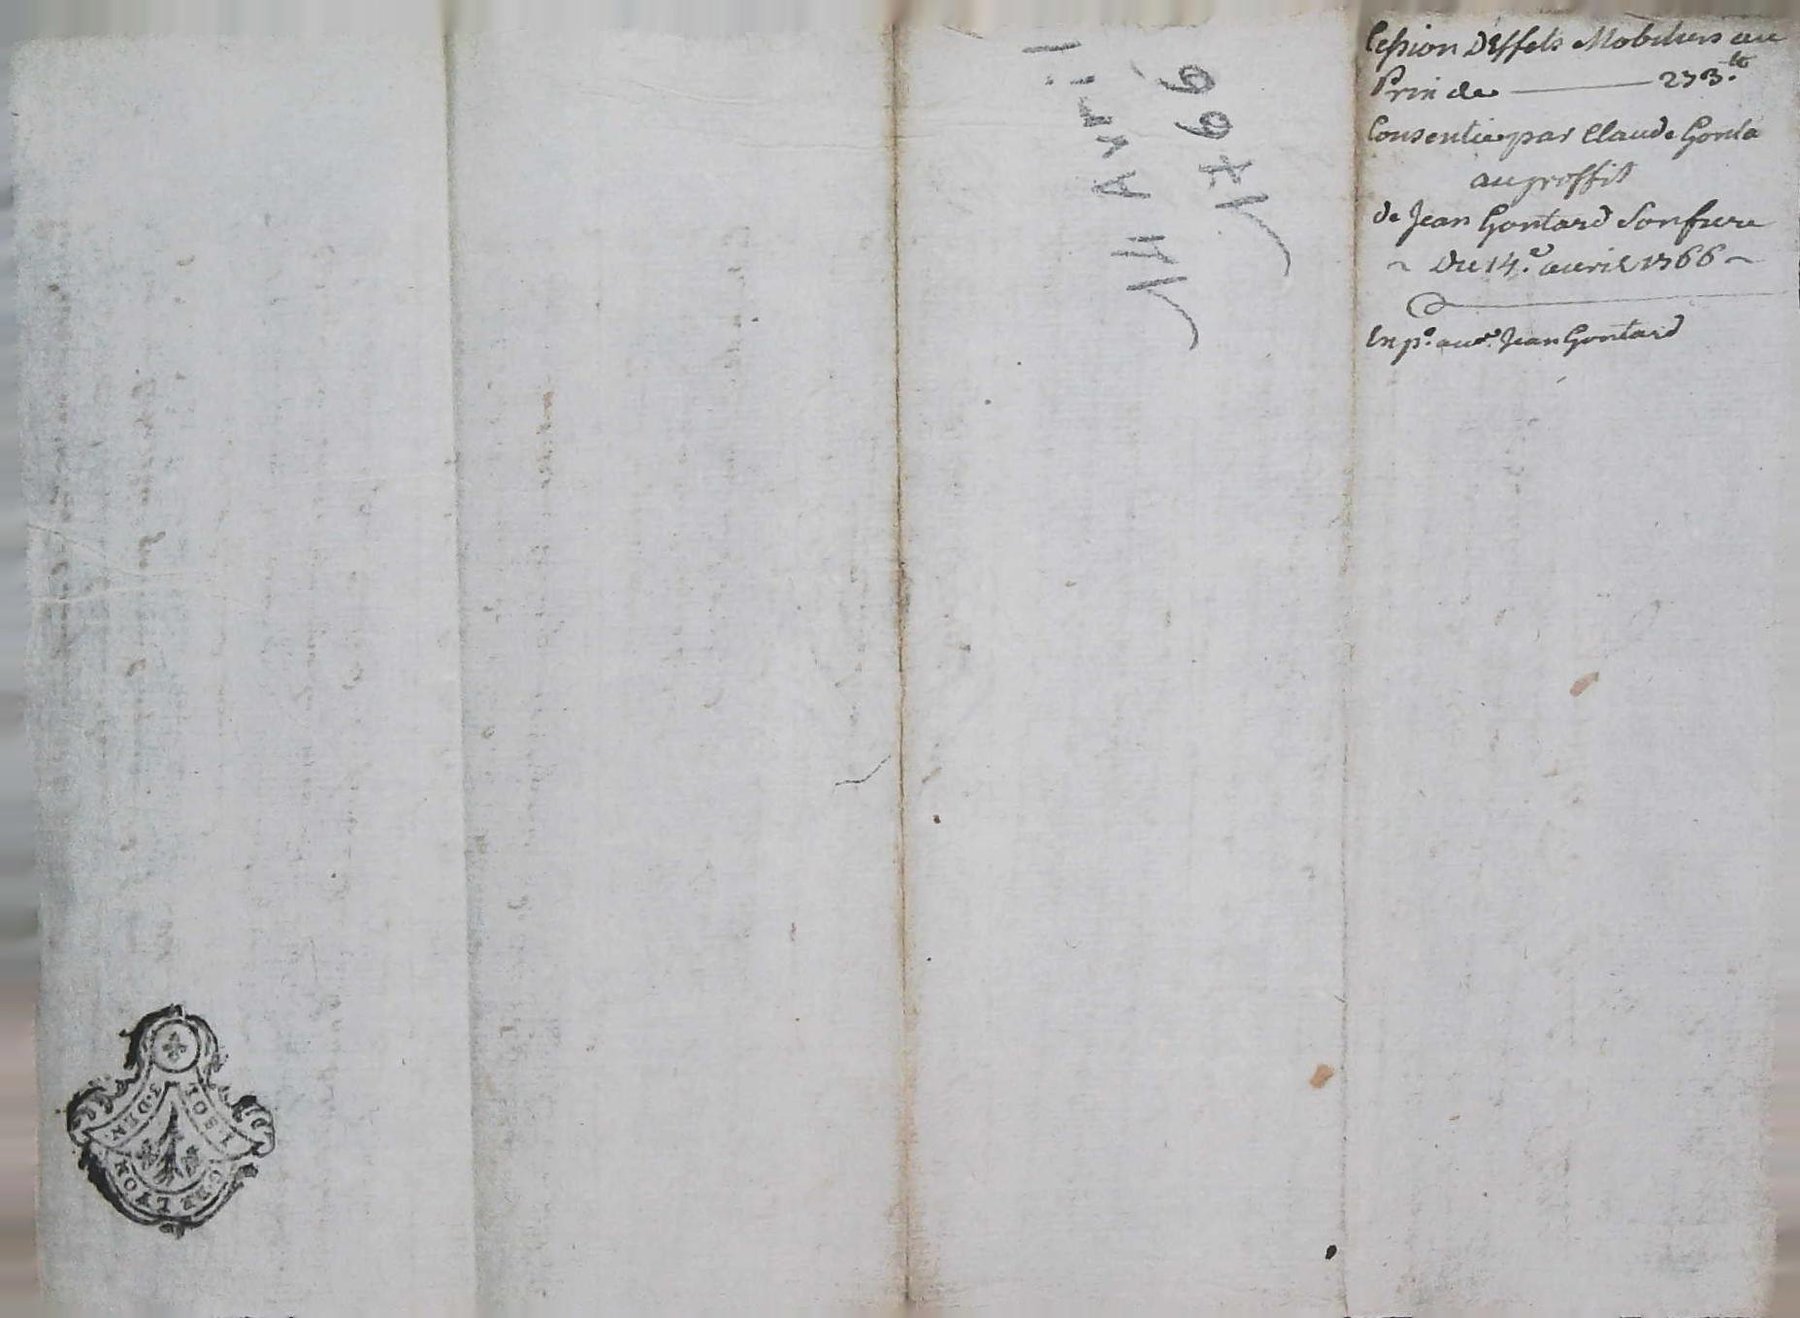 Cession D'Effets Mobiliers au
Prix de ——— 273.lt
Consentie par Claude Gonta
au proffit
de Jean Gontard Son frere
~ Du 14.e avril 1766 ~
Exp.on aud.t Jean Gontard
14 Avril
1766
1 SOL
3 DEN.
G. DE LYON